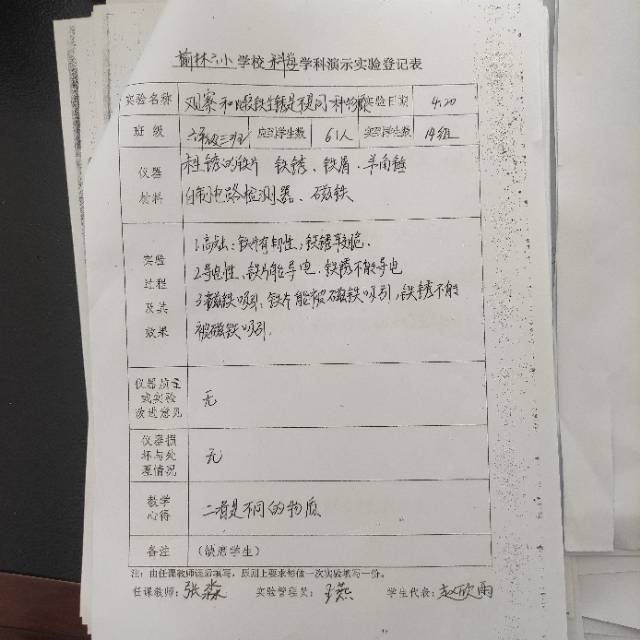 榆林六小学校科学学科演示实验登记表
实验名称 观察和比较铁生锈是不是同一种物质 实验日期 4.20
班 级 六年级三班 实到学生数 61人 实到组数 14组
仪器 材料 未生锈的铁片 铁锈、铁屑、羊角锤
自制电路检测器、磁铁
实验 过程 及其 效果 1.高山:铁片有韧性,铁锈较脆。
2.导电性、铁片能导电、铁锈不能导电
3.磁铁吸引,铁片能被磁铁吸引,铁锈不能
被磁铁吸引。
仪器质量 或实验 改进意见 无
仪器损 坏与处 理情况 无
教学 心得 二者是不同的物质
备注 (缺席学生)
注:由任课教师逐项填写,原则上要求每做一次实验填写一份。
任课教师:张淼 实验管理员:王燕 学生代表:赵欣雨